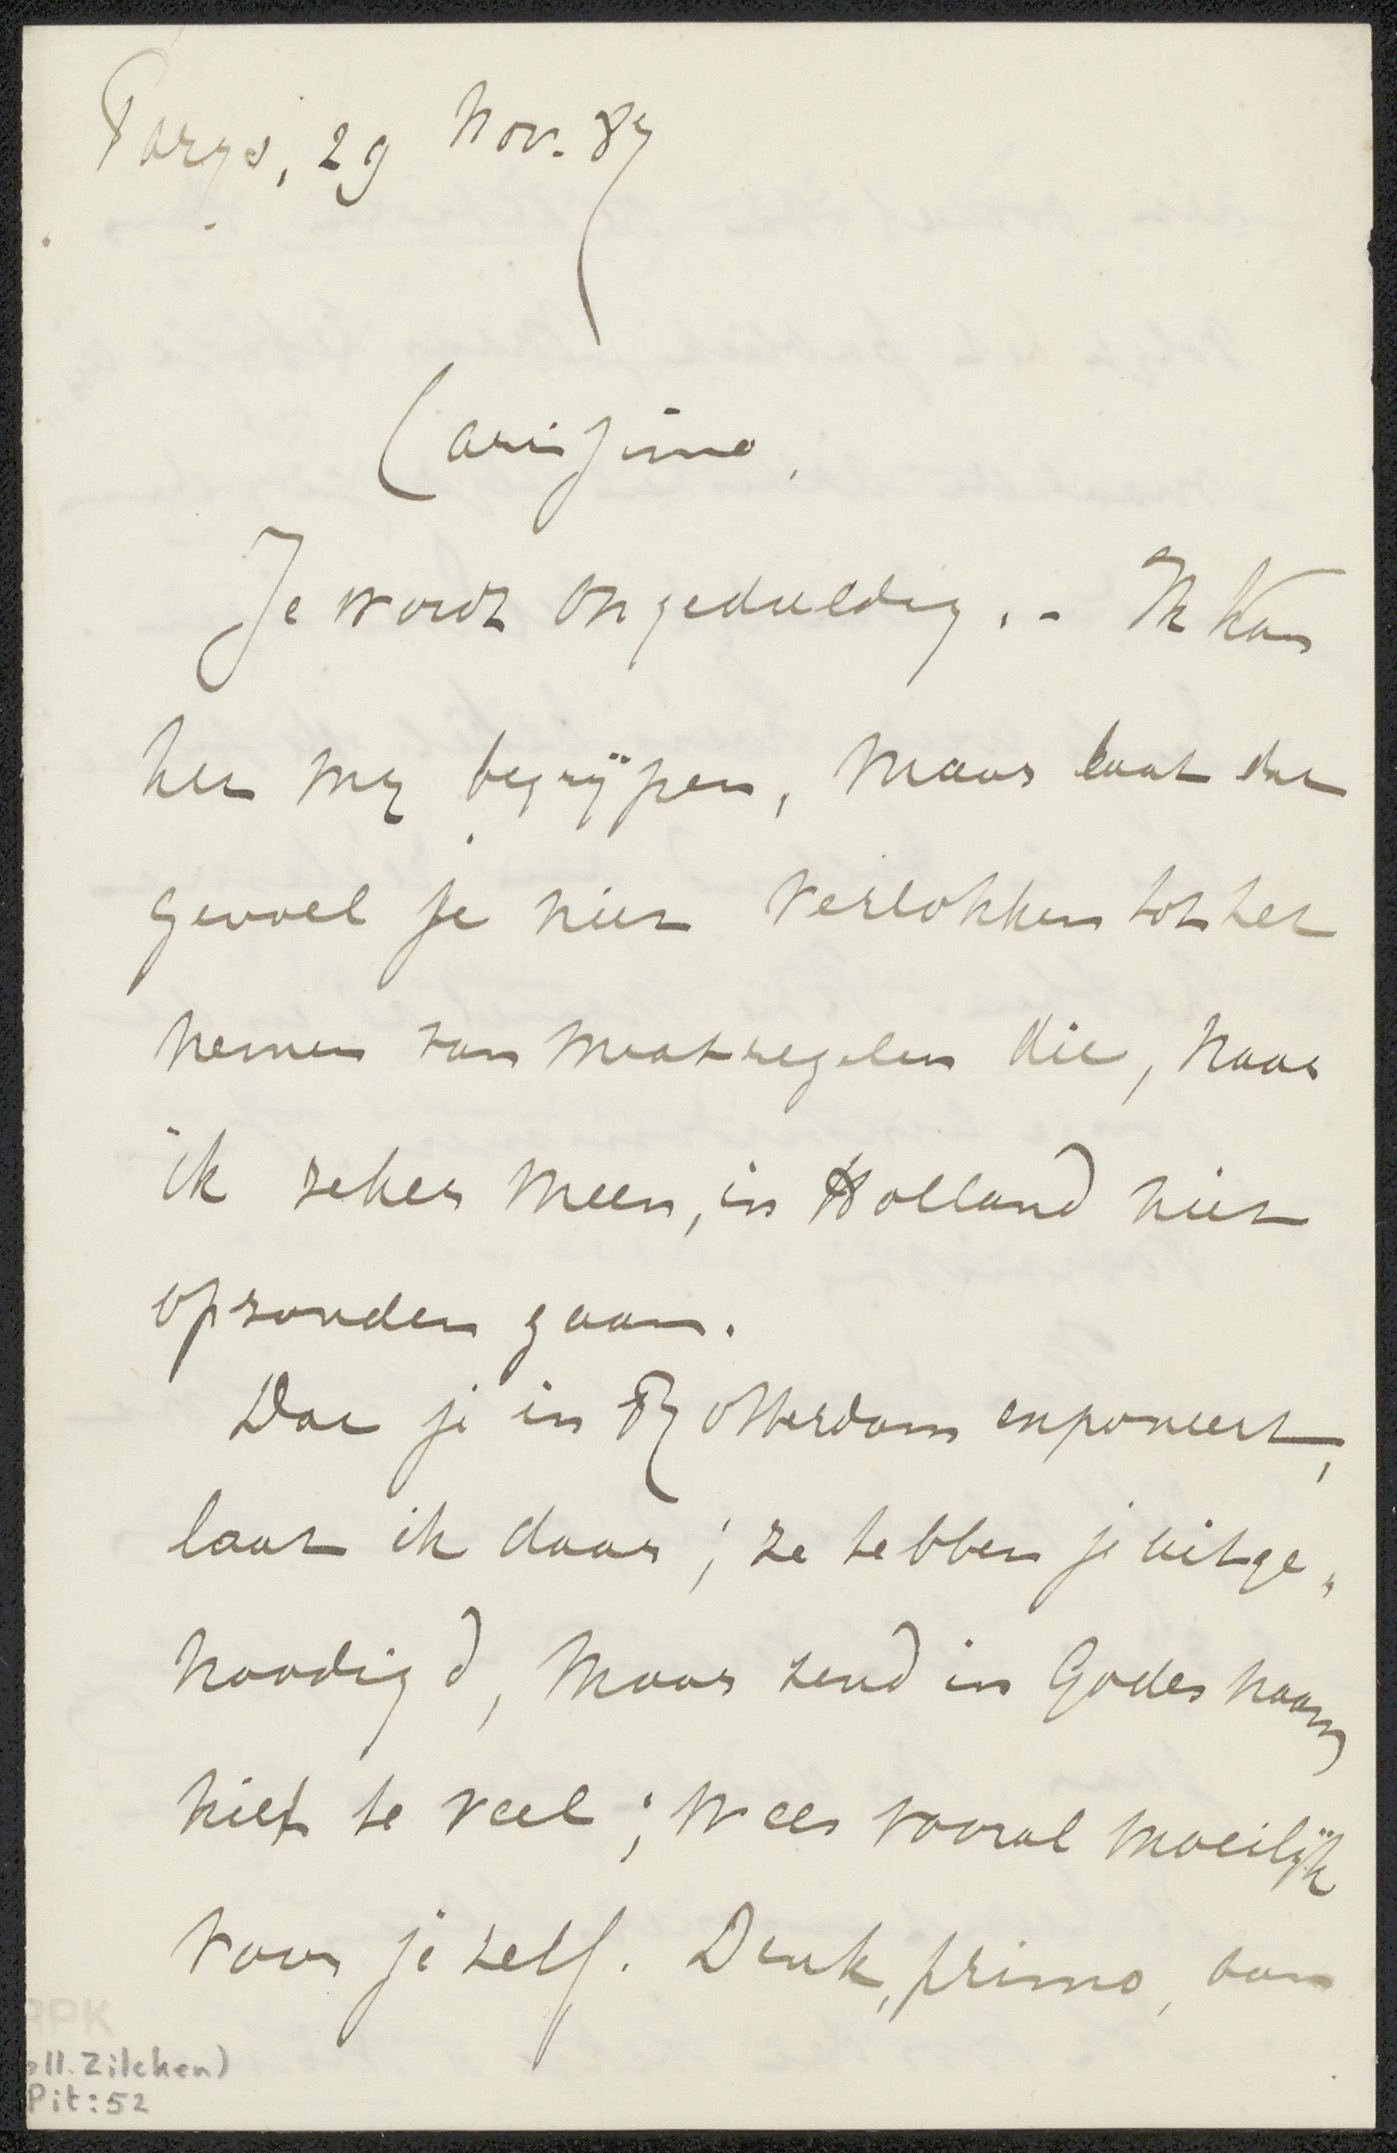 Parys, 29 Nov. 87
Carissimo,
Je wordt ongeduldig. - Ik kan
het my begrÿpen, maar laat dat
gevoel je niet verlokken tot het
nemen van maatregelen die, naar
ik zeker meen, in Holland niet
opzouden gaan.
Dat je in Rotterdam exponeert,
laat ik daar; ze hebben je uitge„
noodigd, maar zend in Godes naam
niet te veel; wees vooral moeilÿk
voor je zelf. Denk, primo, aan
RPK
oll. Zilcken)
Pit: 52